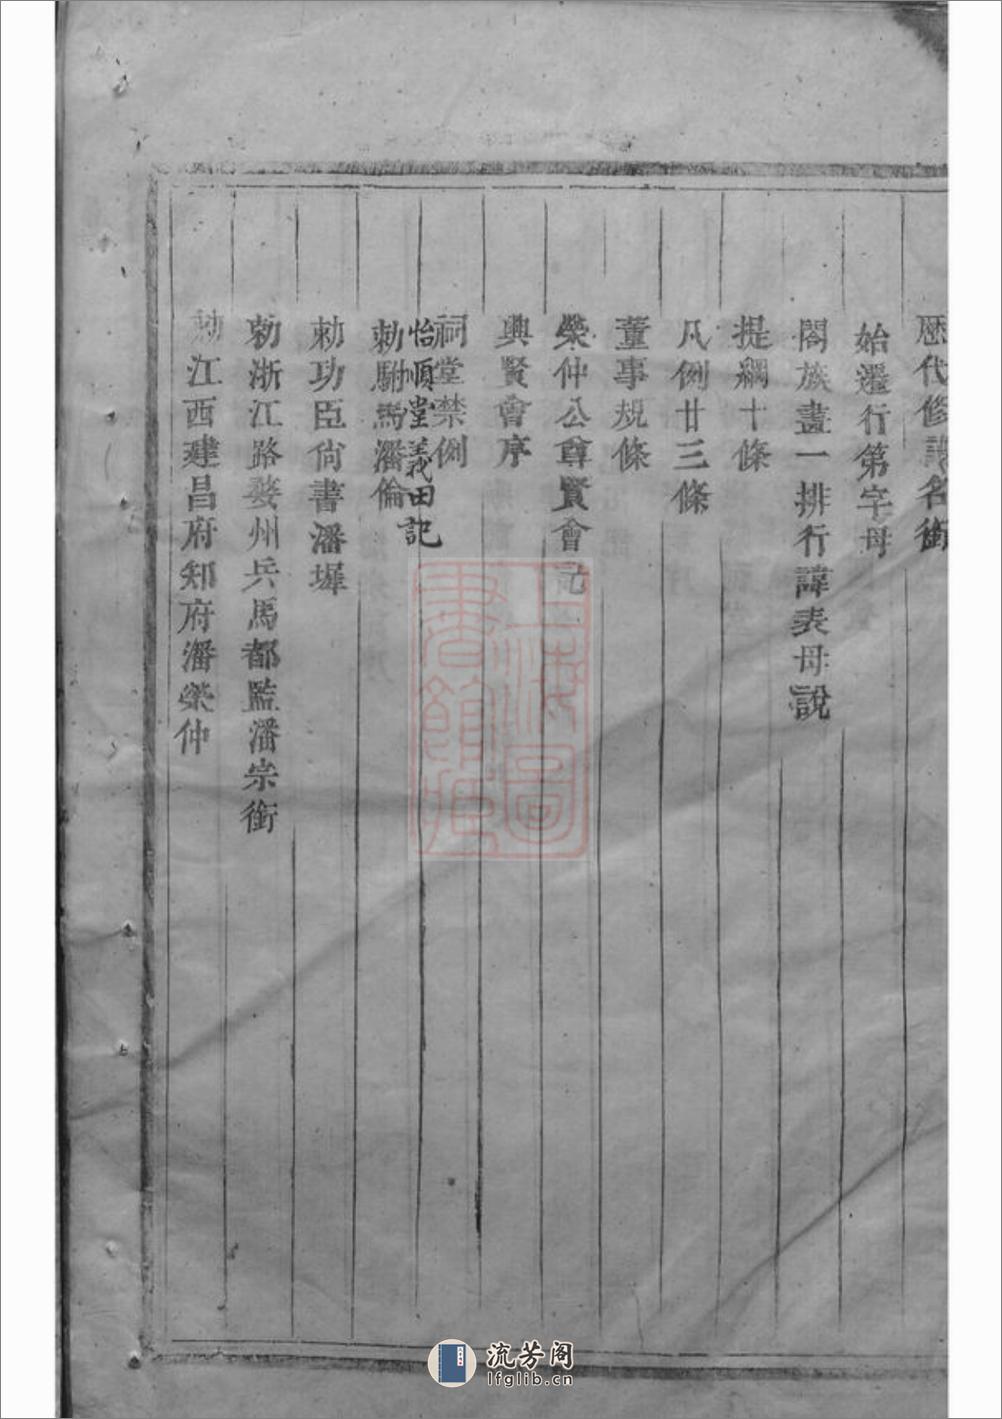 歷代修譜名銜
始遷行第字母
閤族晝一排行諱表母說
提綱十條
凡例廿三條
董事規條
榮仲公尊賢會記
興賢會序
祠堂禁例
怡順堂義田記
勅駙馬潘倫
勅功臣尙書潘墀
勅浙江路婺州兵馬都監潘宗銜
勅江西建昌府知府潘榮仲
上海圖書館藏
流芳阁
lfglib.cn